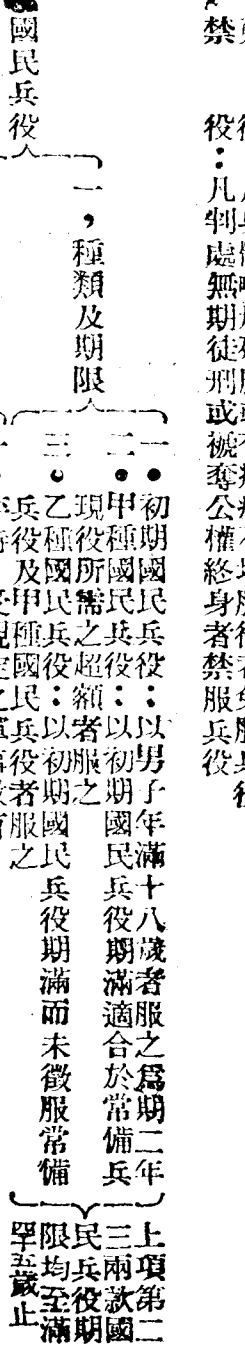 禁役：凡判處無期徒刑或褫奪公權終身者禁服兵役
國民兵役
一，種類及期限
一．初期國民兵役：以男子年滿十八歲者服之爲期二年
二．甲種國民兵役：以初期國民兵役期滿適合於常備兵
現役所需之超額者服之
三．乙種國民兵役：以初期國民兵役期滿而未徵服常備
兵役及甲種國民兵役者服之
上項第二
三兩款國
民兵役期
限均至滿
罕五歲止